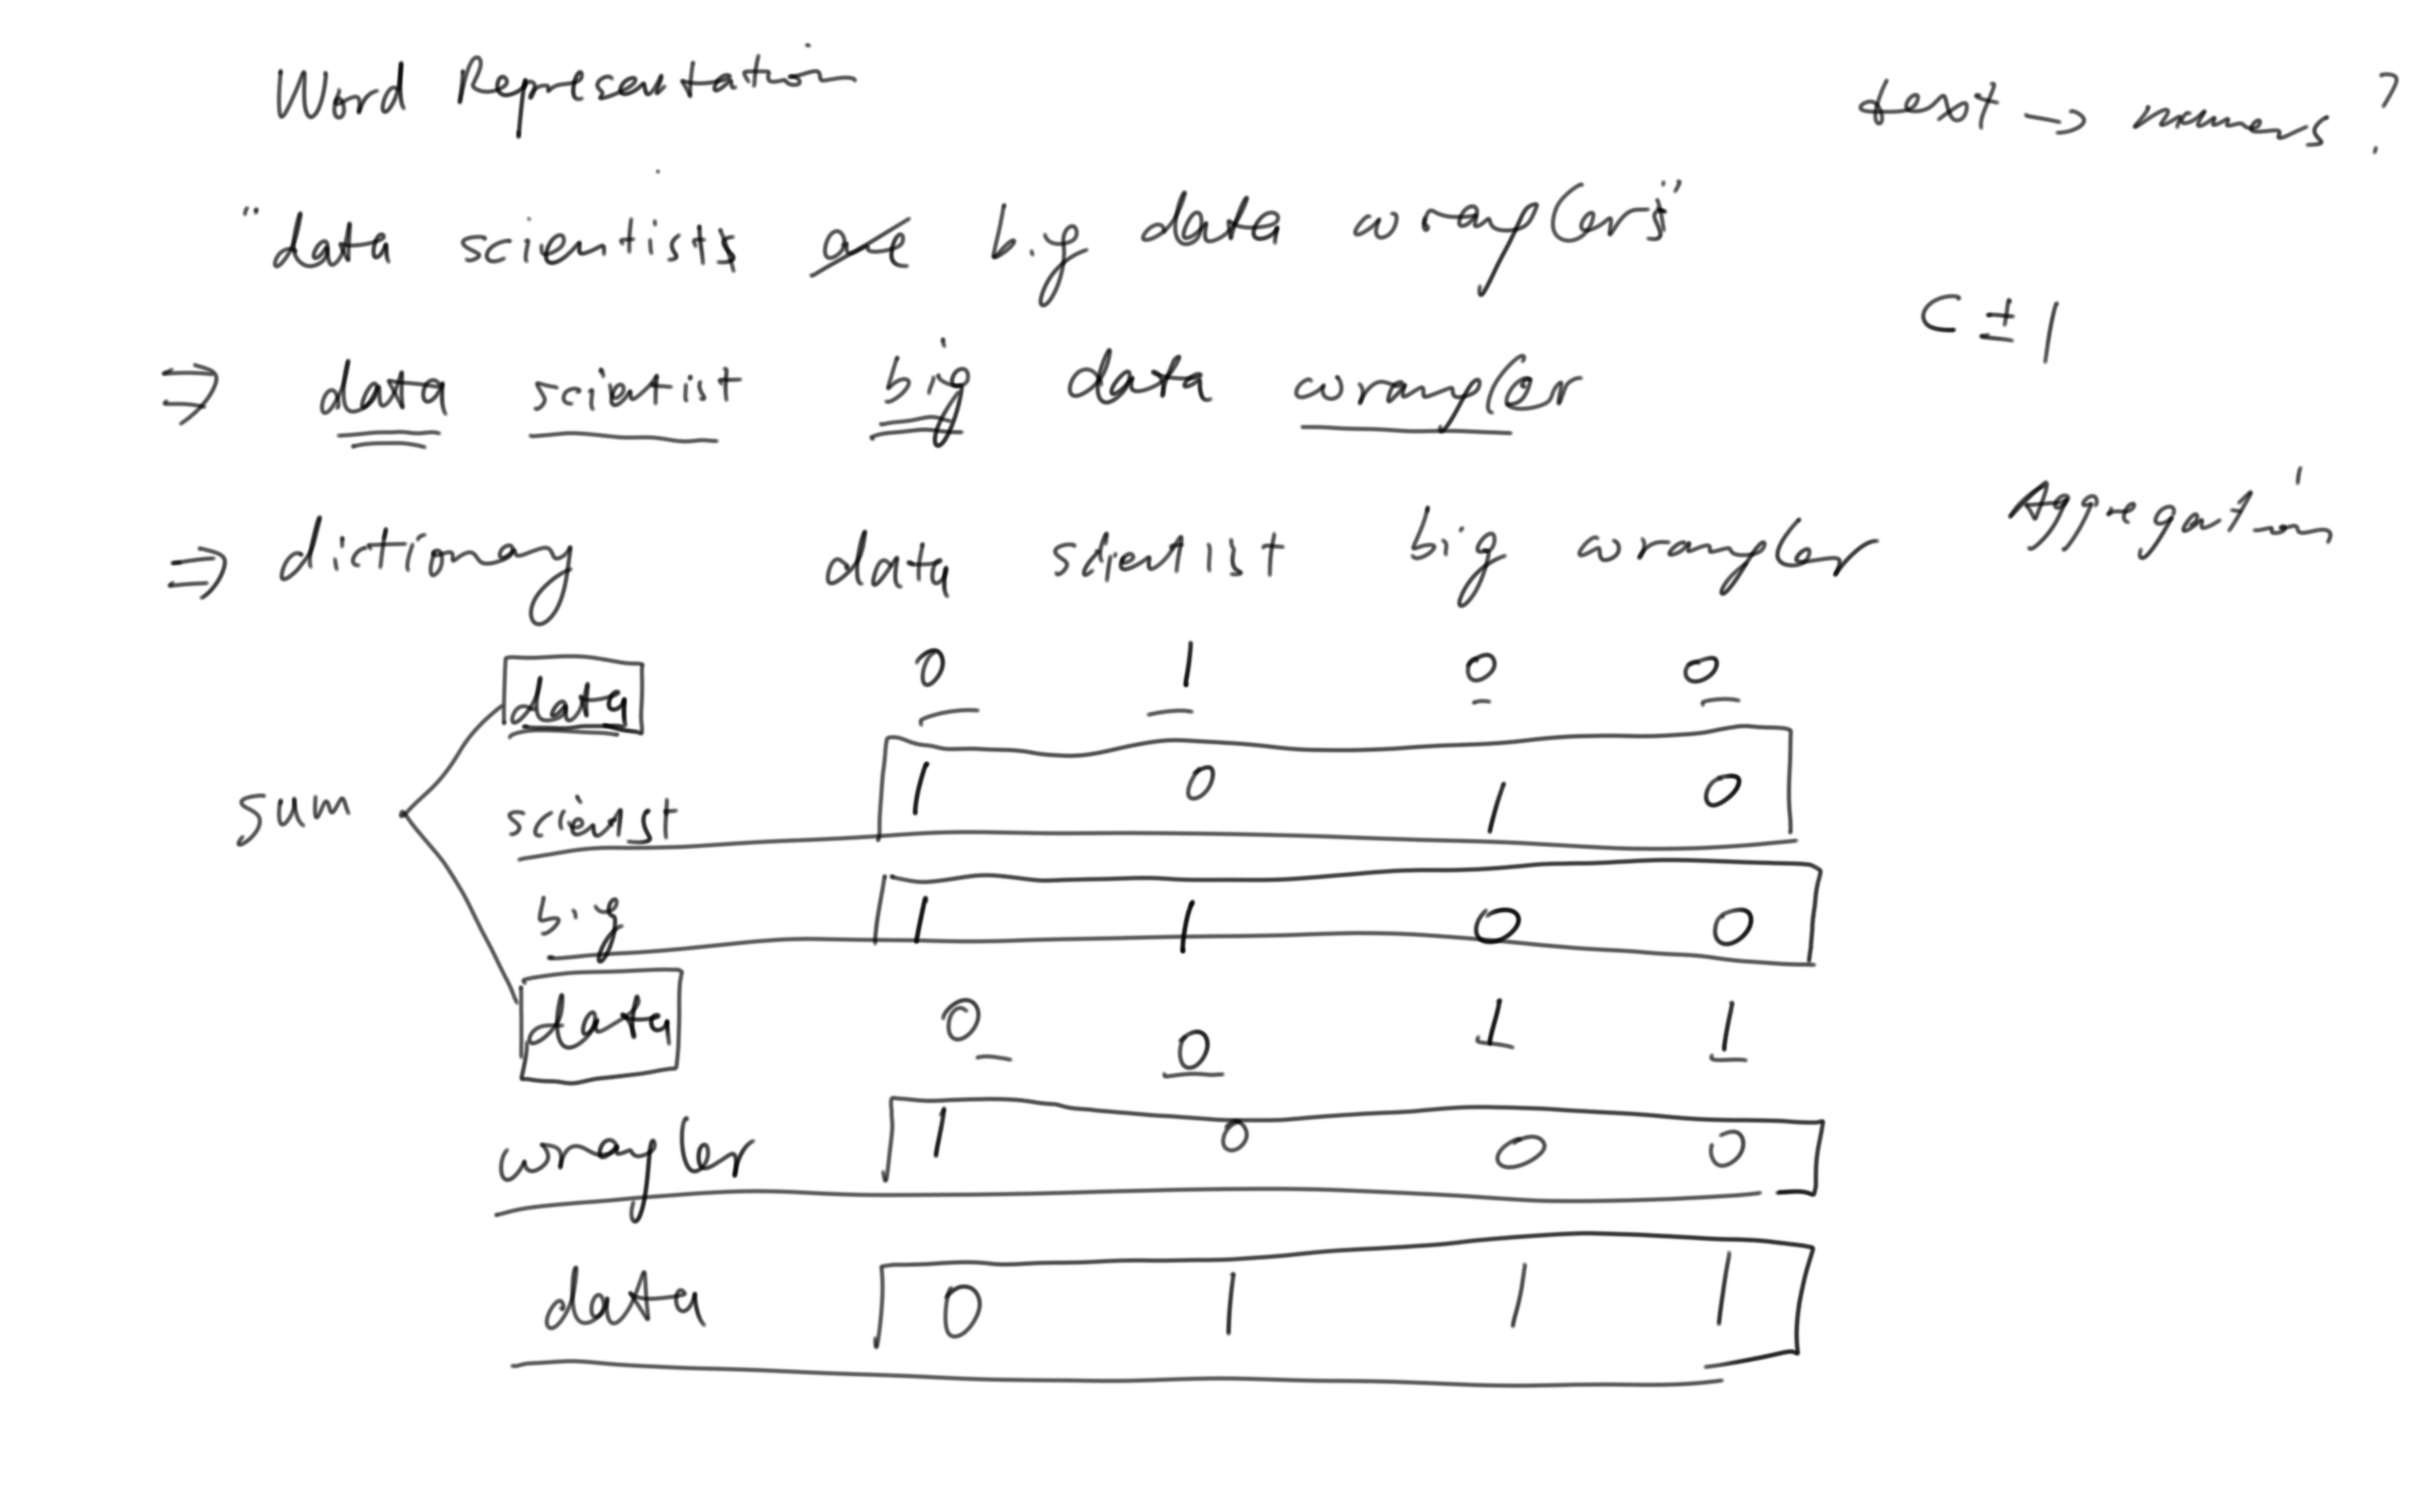 Word Representation
text → numbers ?
"data scientists are big data wranglers"
C ± 1
⇒ data scientist big data wrangler
Aggregation
⇒ dictionary data scientist big wrangler
data 0 1 0 0
sum
scientist 1 0 1 0
big 1 1 0 0
data 0 0 1 1
wrangler 1 0 0 0
data 0 1 1 1